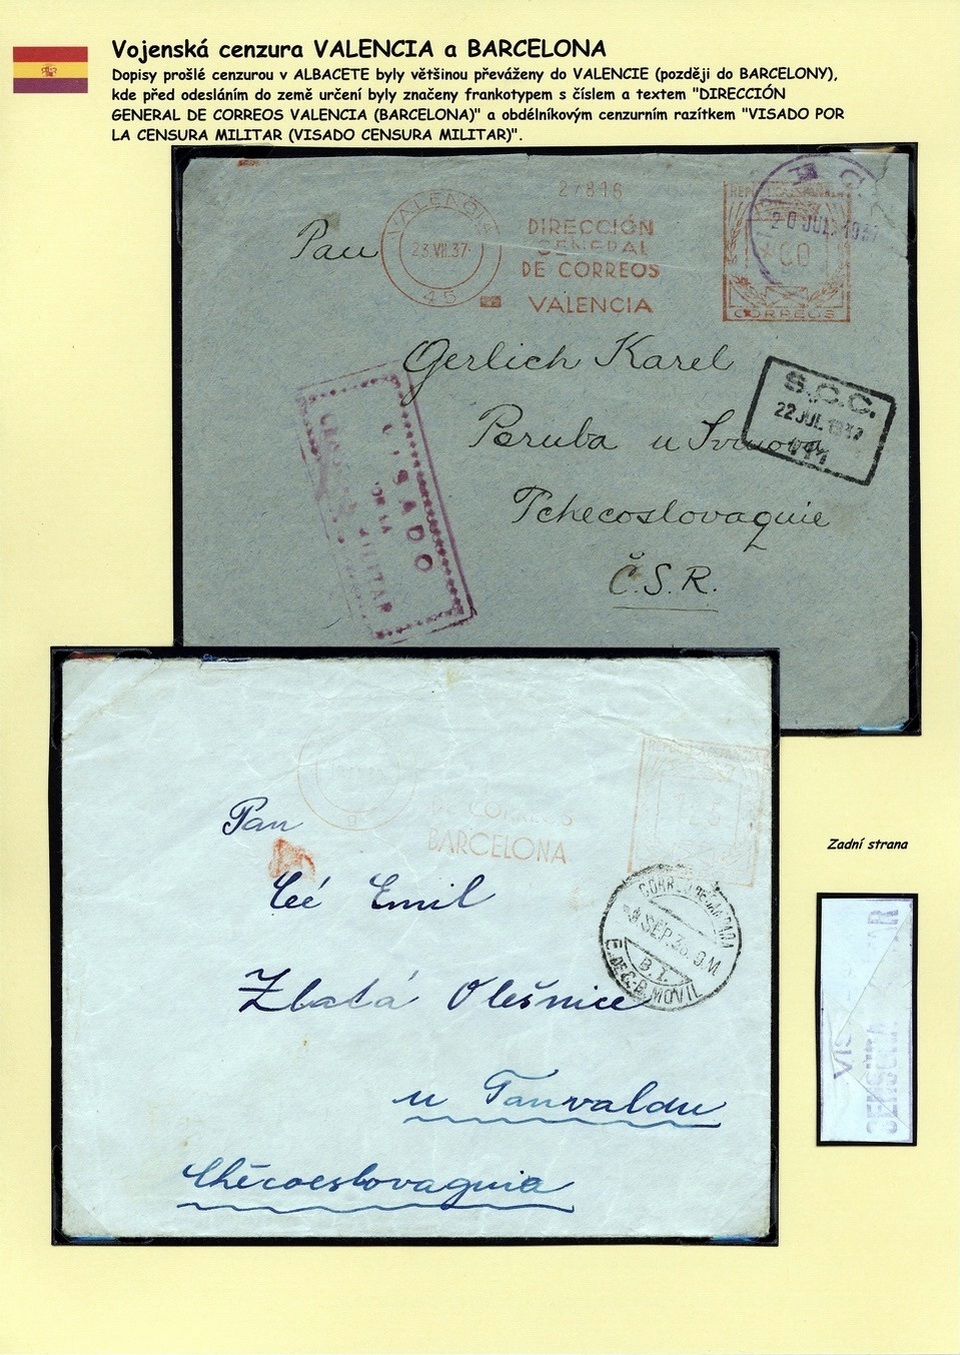 Vojenská cenzura VALENCIA a BARCELONA
Dopisy prošlé cenzurou v ALBACETE byly většinou převáženy do VALENCIE (později do BARCELONY),
kde před odesláním do země určení byly značeny frankotypem s číslem a textem "DIRECCIÓN
GENERAL DE CORREOS VALENCIA (BARCELONA)" a obdélníkovým cenzurním razítkem "VISADO POR
LA CENSURA MILITAR (VISADO CENSURA MILITAR)".
27816
VALENCIA
23.VII.37
45
DIRECCIÓN
GENERAL
DE CORREOS
VALENCIA
CORREOS
20 JUL 1937
Pan
Gerlich Karel
Poruba u Svinova
Tchecoslovaquie
Č.S.R.
S.C.C.
22 JUL 1937
VISADO
POR LA
MILITAR
DE CORREOS
BARCELONA
Pan
Ceé Emil
Zlatá Olešnice
u Tanvaldu
Chécoeslovaquia
SEP. 38
B. I.
MOVIL
Zadní strana
VIS
CENSURA
AR